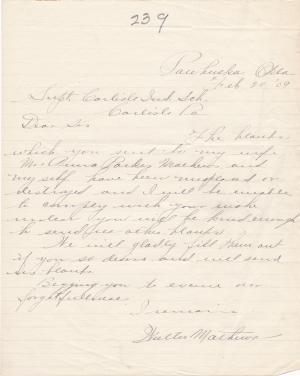 239
Pawhuska Okla
Feb 20, '09
Supt Carlisle Ind Sch.
Carlisle Pa
Dear Sir
The blanks
which you sent to my wife
Mrs Parker Mathews and
my self have been misplaced or
destroyed and I will be unable
to comply with your wishes
unless you will be kind enough
to send us other blanks.
We will gladly fill them out
if you so desire and will send
us blanks.
Begging you to excuse our
forgetfulness
I remain
Walter Mathews